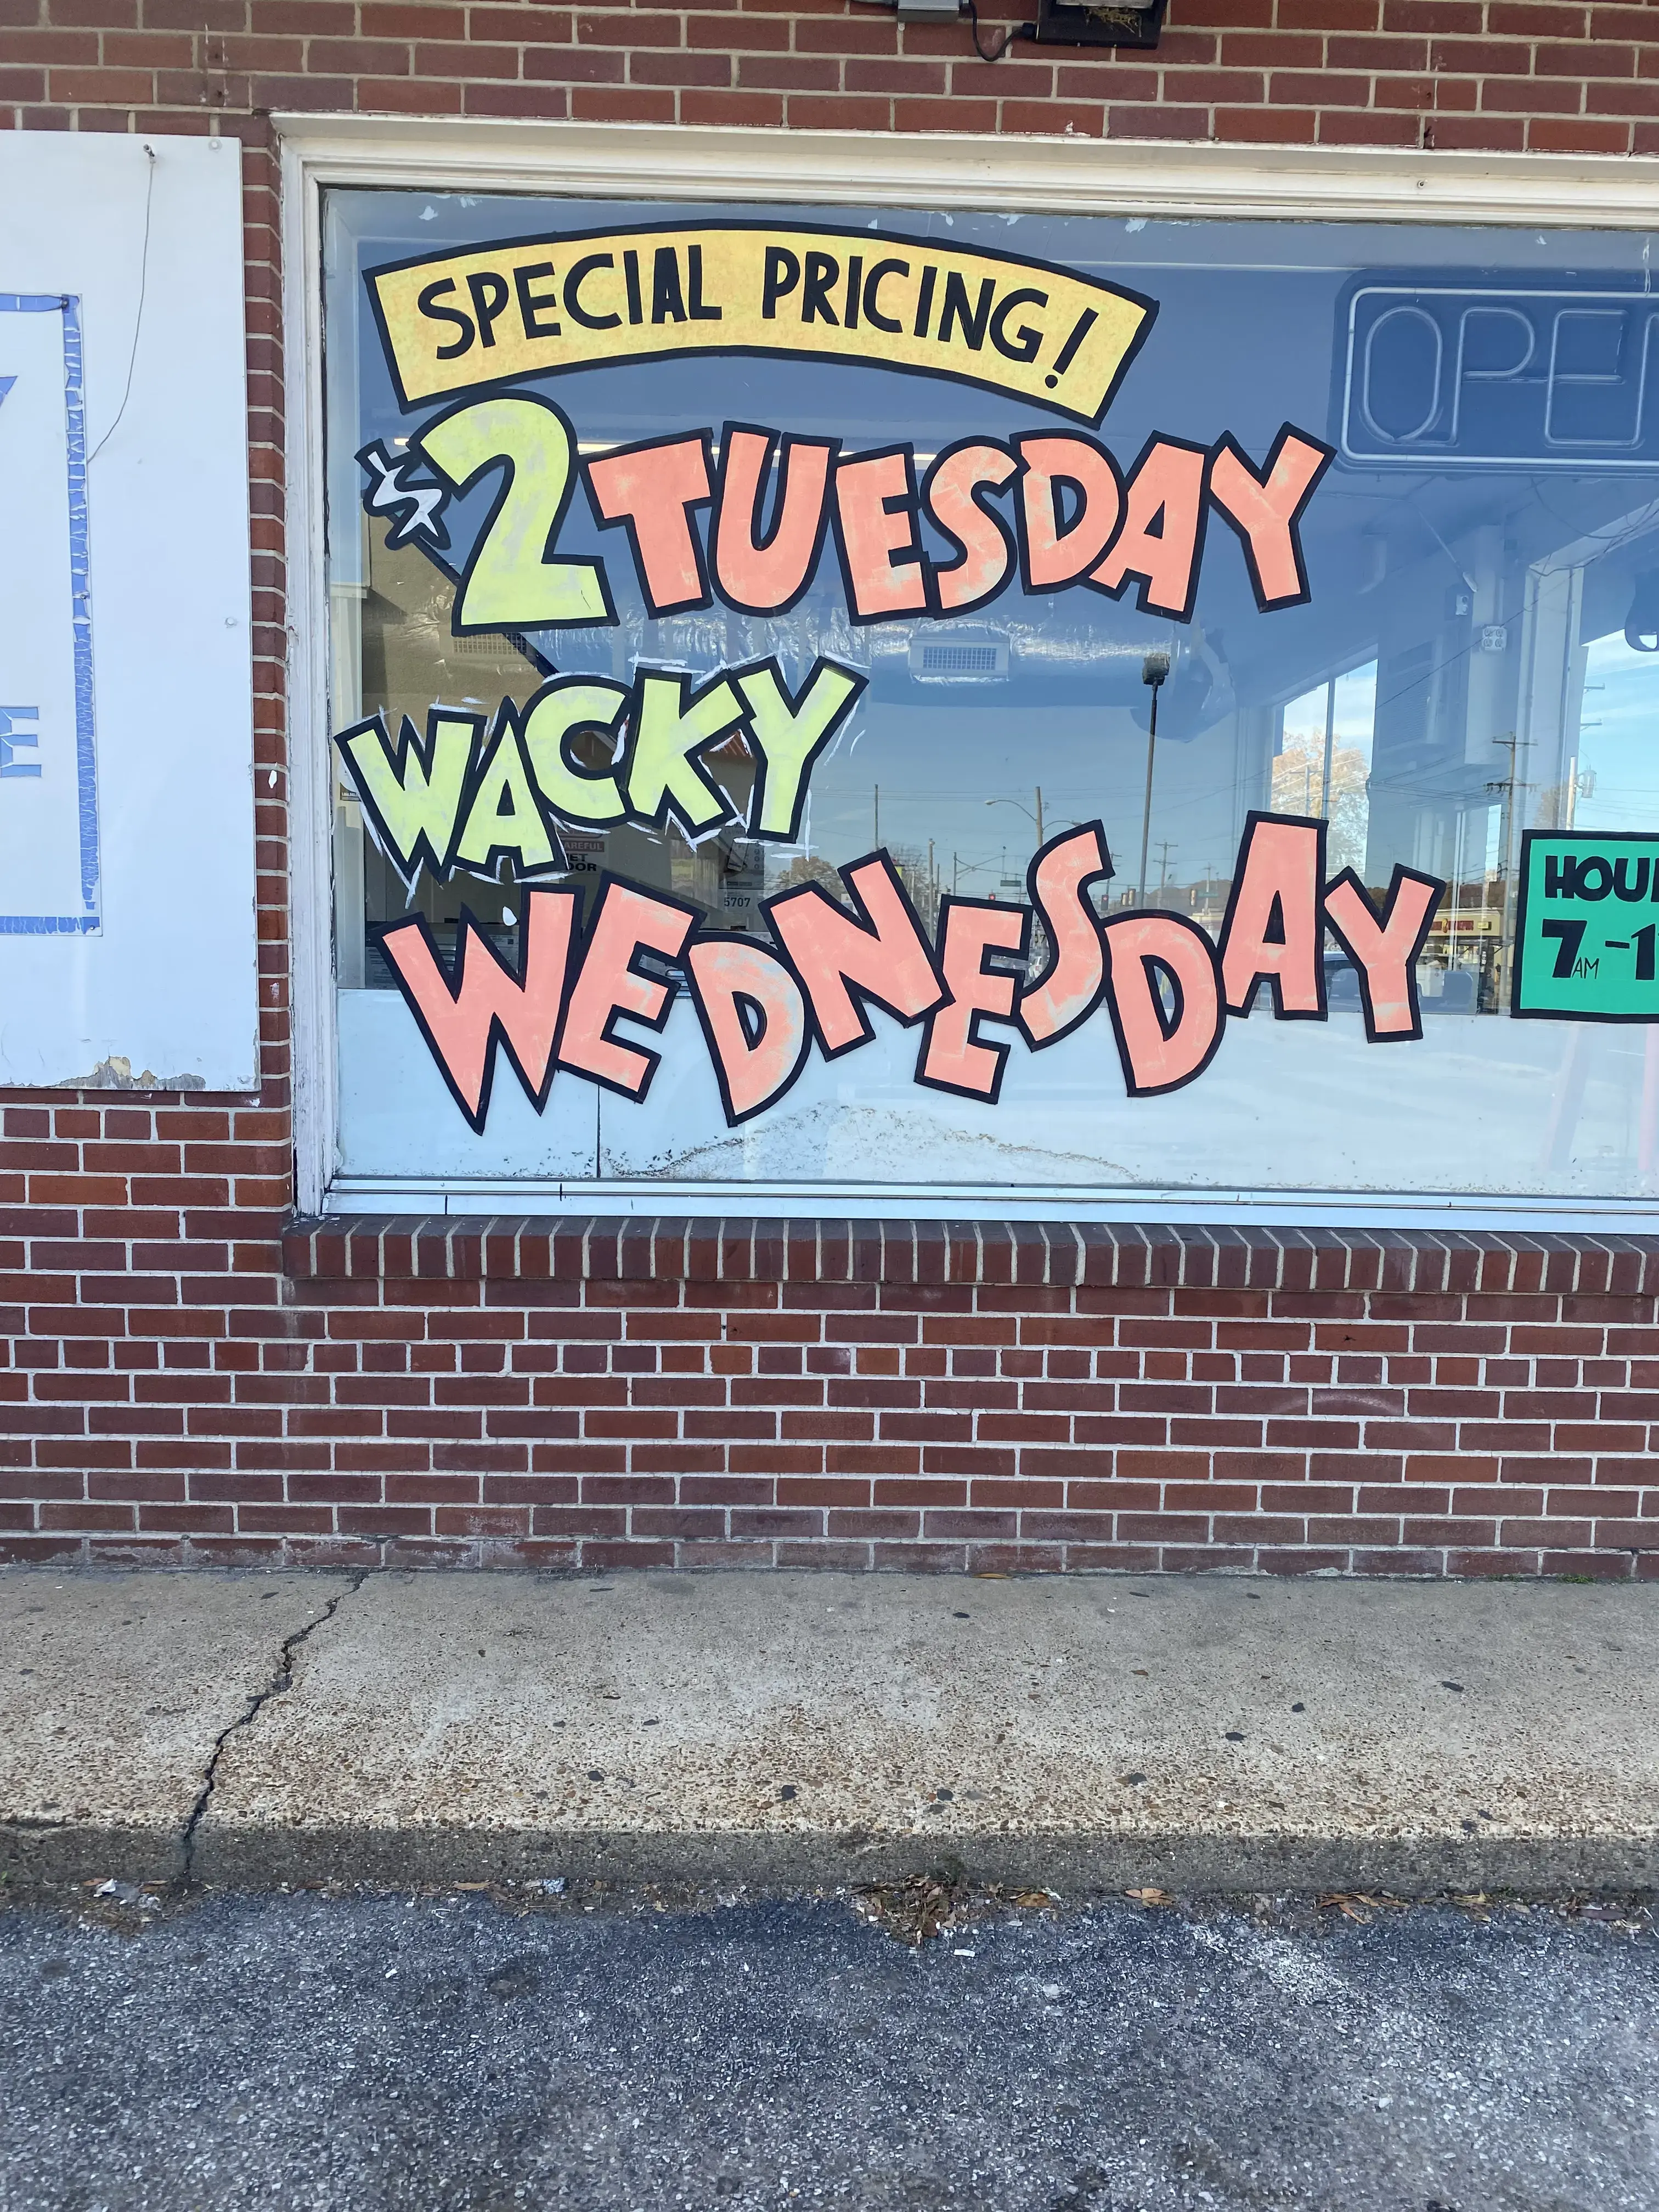 SPECIAL PRICING!
$2 TUESDAY
WACKY
WEDNESDAY
OPE
HOU
7AM-1
CAREFUL
5707
E